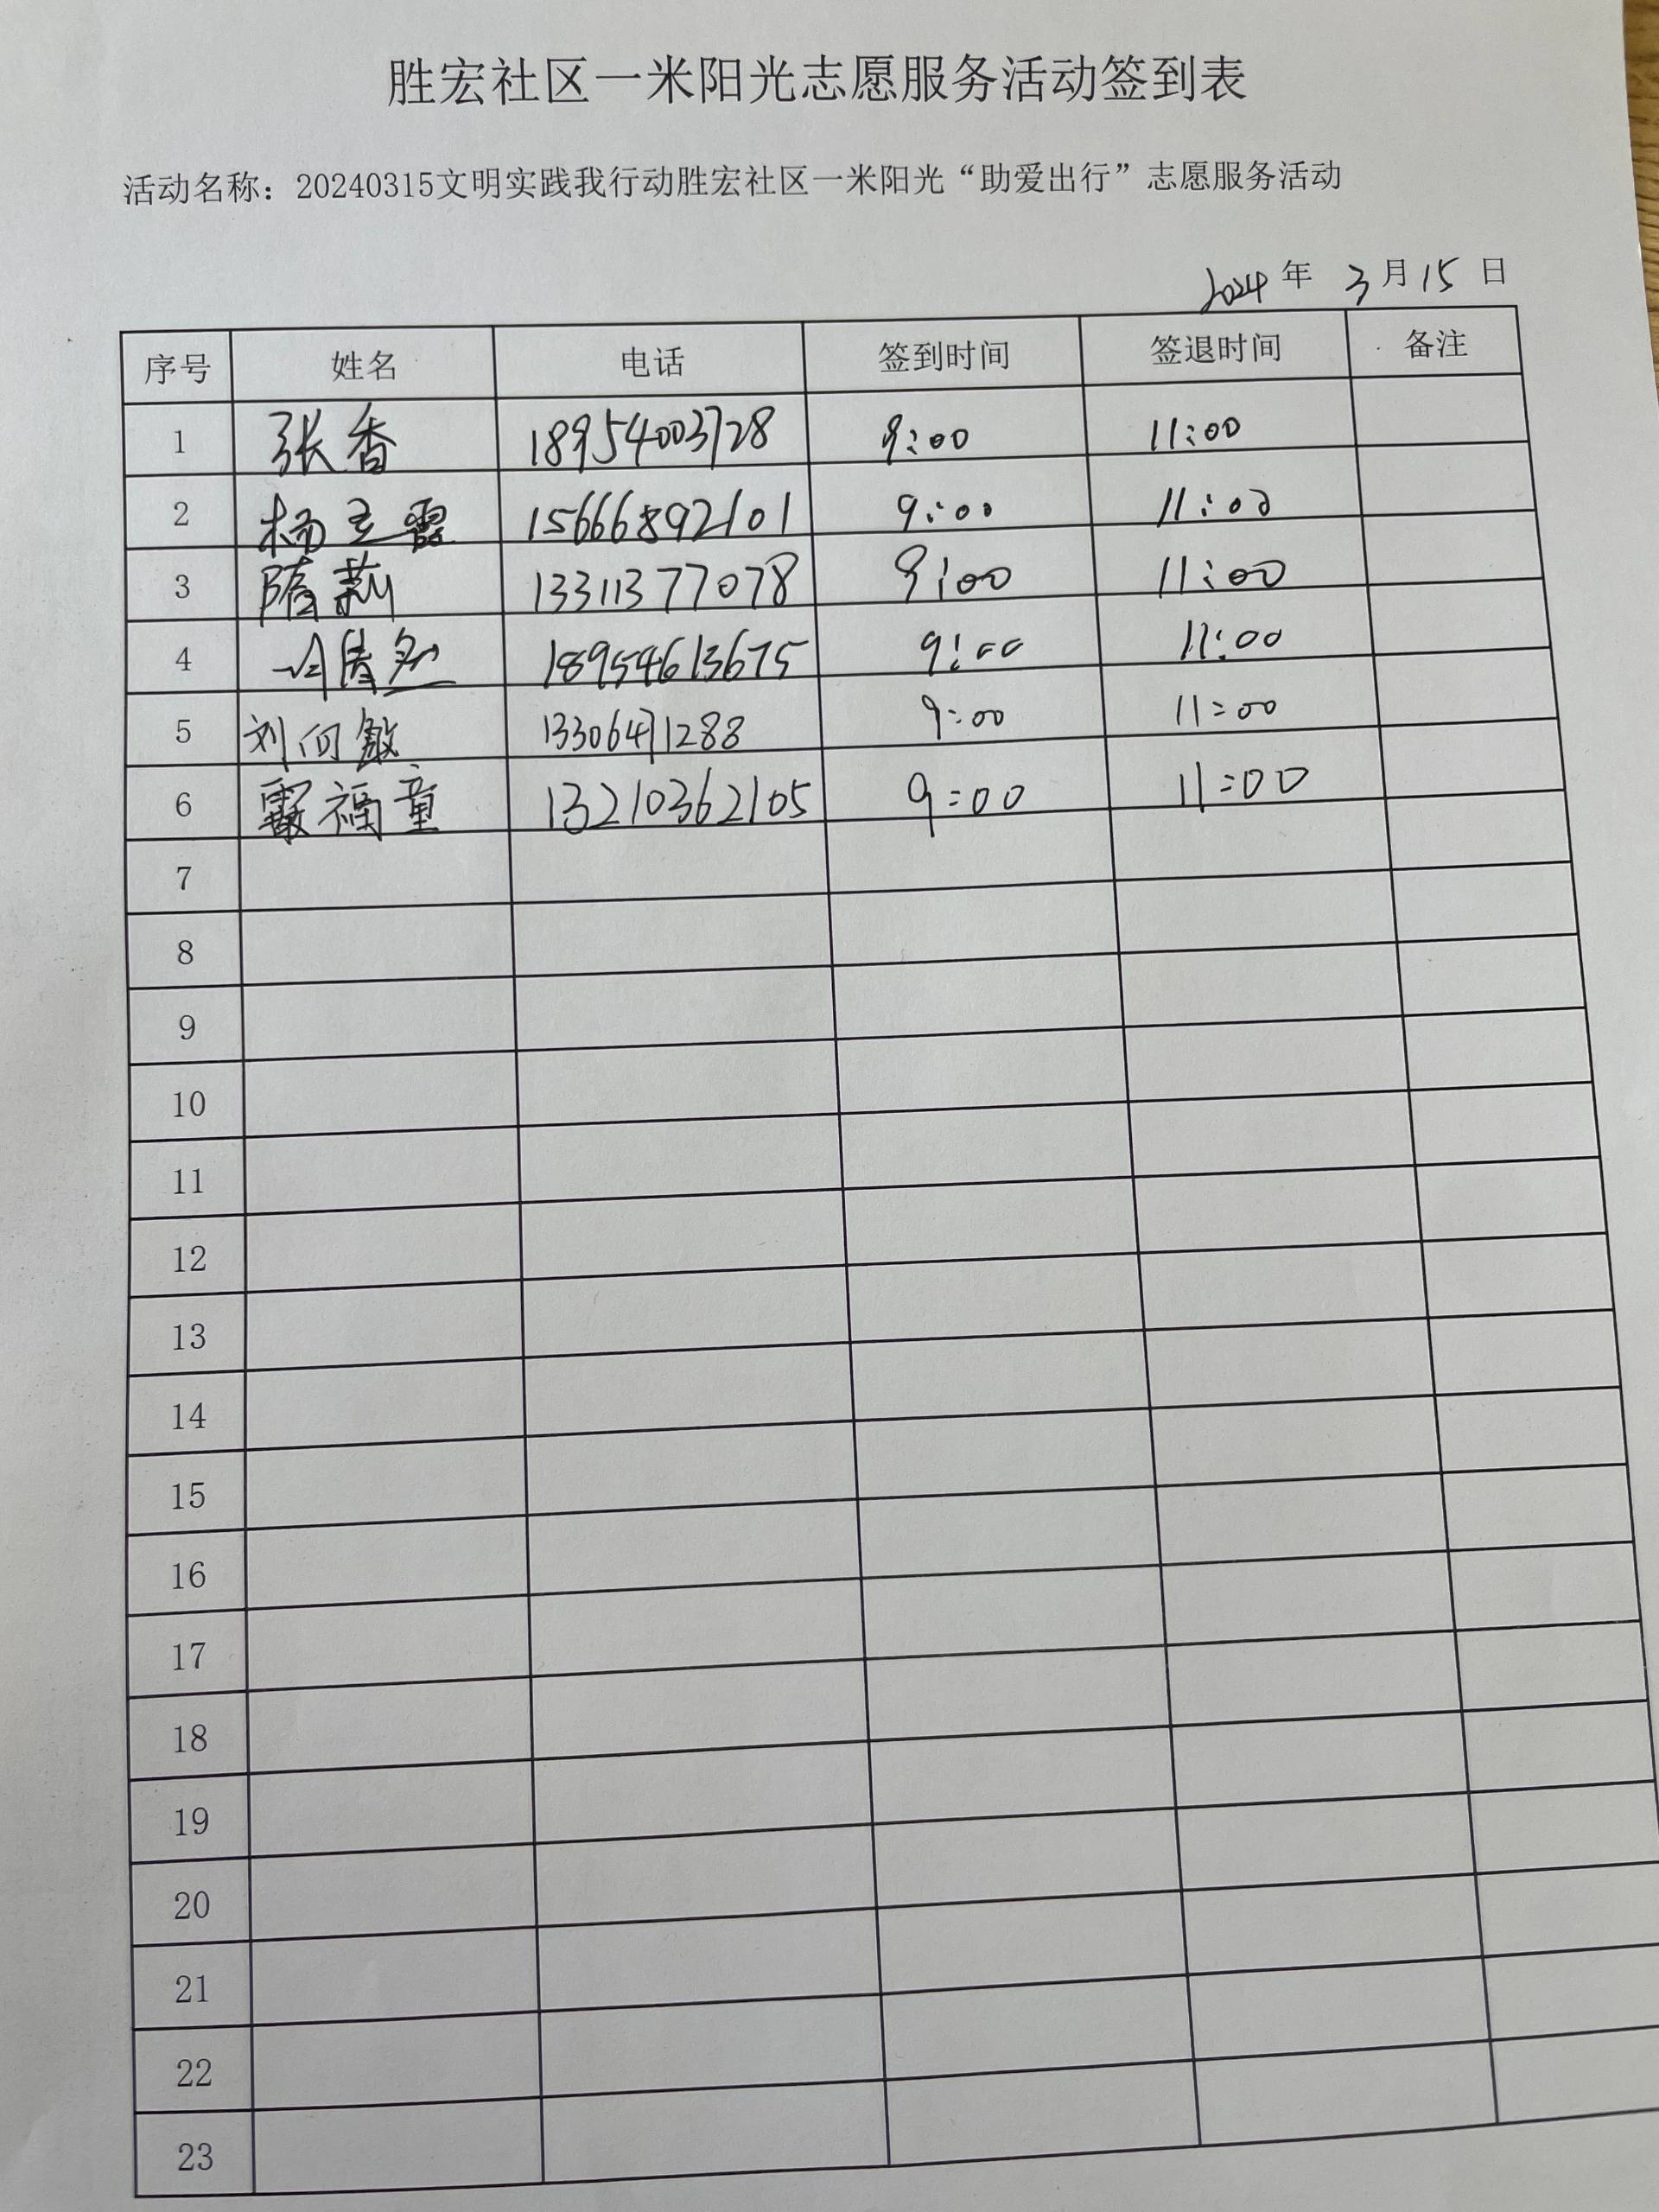 胜宏社区一米阳光志愿服务活动签到表
活动名称：20240315文明实践我行动胜宏社区一米阳光“助爱出行”志愿服务活动
2024 年 3 月 15 日
序号 姓名 电话 签到时间 签退时间 备注
1 张香 18954003728 9:00 11:00
2 杨玉霞 15666892101 9:00 11:00
3 隋莉 13311377078 9:00 11:00
4 18954613675 9:00 11:00
5 刘向敏 13306471288 9:00 11:00
6 霰福童 13210362105 9:00 11:00
7
8
9
10
11
12
13
14
15
16
17
18
19
20
21
22
23